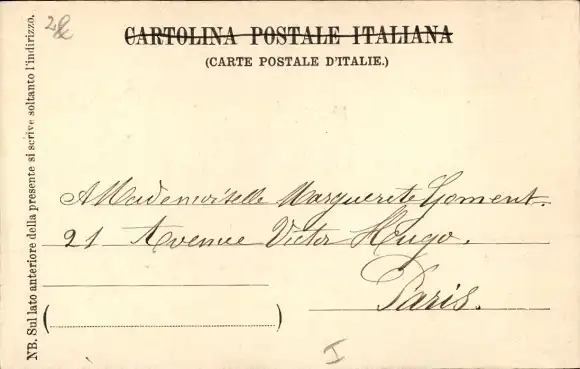 CARTOLINA POSTALE ITALIANA
(CARTE POSTALE D'ITALIE.)
NB. Sul lato anteriore della presente si scrive soltanto l'indirizzo.
A Mademoiselle Marguerete Goment.
21 Avenue Victor Hugo.
Paris.
I